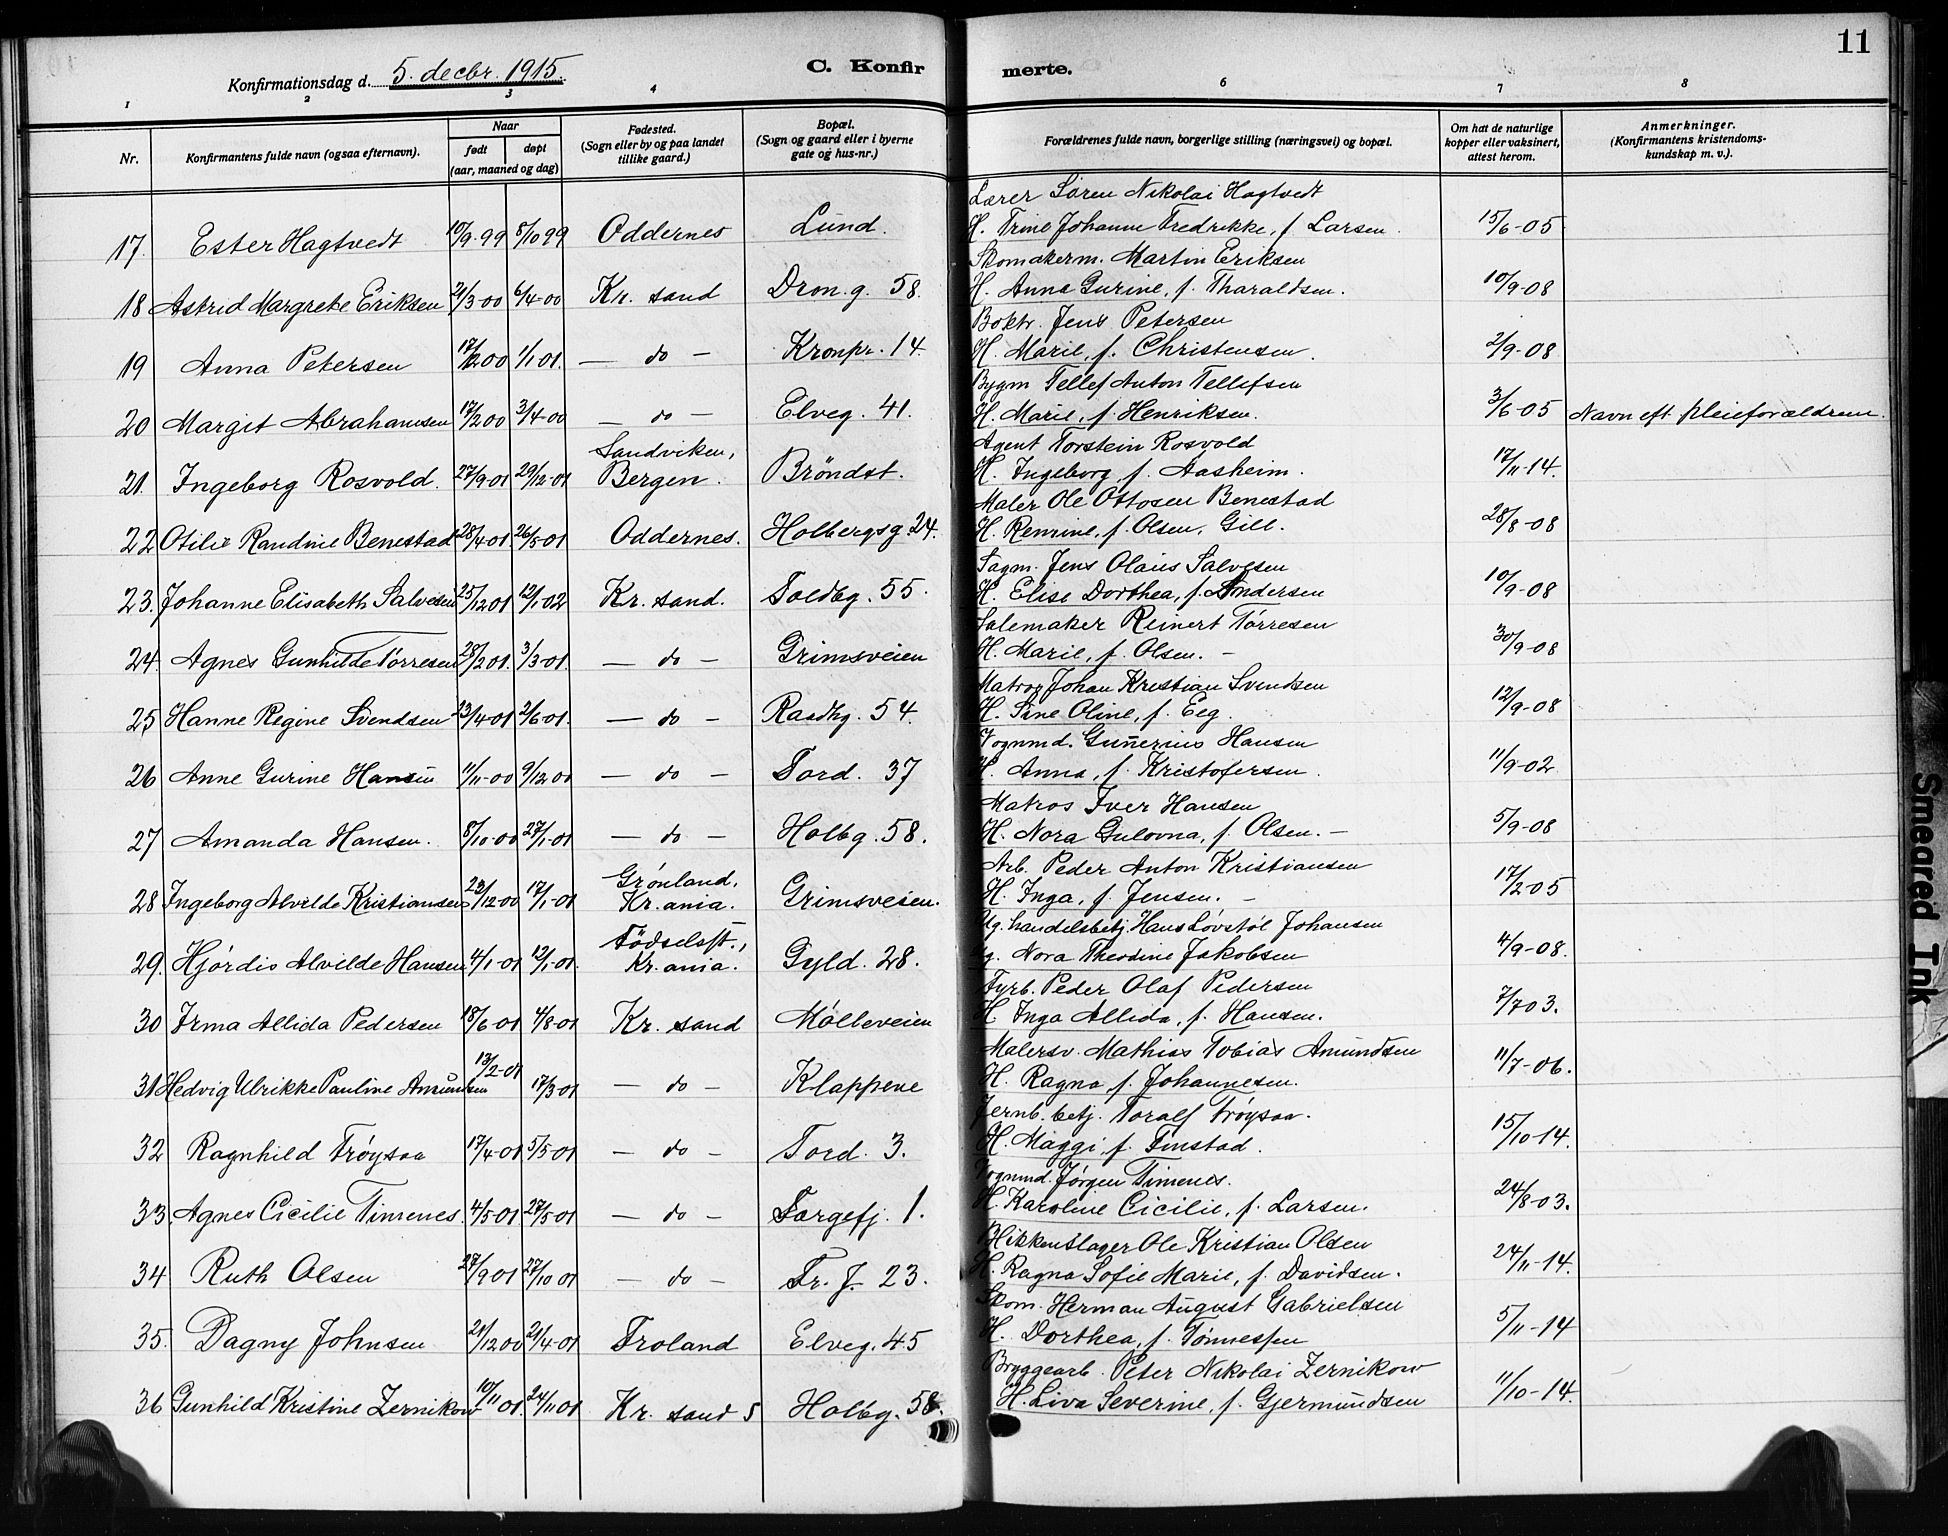 11
Konfirmationsdag d. 5. decbr. 1915.
C. Konfir merte.
1 2 3 4 6 7 8
Nr.
Konfirmantens fulde navn (ogsaa efternavn).
Naar
født
døpt
(aar, maaned og dag)
Fødested.
(Sogn eller by og paa landet
tillike gaard.)
Bopæl.
(Sogn og gaard eller i byerne
gate og hus-nr.)
Forældrenes fulde navn, borgerlige stilling (næringsvei) og bopæl.
Om hatt de naturlige
kopper eller vaksinert,
attest herom.
Anmerkninger.
(Konfirmantens kristendoms-
kundskap m. v.).
Lærer Søren Nikolai Hagtvedt
17. Ester Hagtvedt 10/9-99 8/10 99 Oddernes Lund. H. Trine Johanne Fredrikke, f. Larsen. 15/6-05
Skomakerm. Martin Eriksen
18 Astrid Margrete Eriksen 21/3-00 6/4-00 Kr. sand Dron. g. 58. H. Anna Gurine, f. Tharaldsen. 10/9-08
Boktr. Jens Petersen
19 Anna Petersen 17/12 00 1/1-01. — do — Kronpr. 14. H. Marie, f. Christensen. 2/9-08
Bygm Tellef Anton Tellefsen
20 Margit Abrahamsen 17/2 00 3/4-00 — do — Elveg. 41. H. Marie, f. Henriksen. 3/6-05 Navn eft. pleieforældrene.
Agent Torstein Rosvold
21. Ingeborg Rosvold. 27/9-01 29/12-01 Sandviken, Bergen. Bröndst. H. Ingeborg, f. Aasheim. 17/11-14.
Maler Ole Ottosen Benestad
22 Otilie Randine Benestad 28/4-01. 26/5-01 Oddernes. Holbergsg. 24. H. Renrine, f. Olsen, Gill. 28/8-08
Sagm. Jens Olaus Salvesen
23. Johanne Elisabeth Salvesen 25/12 01 12/1-02 Kr. sand. Toldbg. 55. H. Elise Dorthea, f. Andersen 10/9-08
Salemaker Reinert Tørresen
24. Agnes Gunhilde Tørresen 28/2 01. 3/3-01. — do — Grimsveien H. Marie, f. Olsen. — 30/9-08
Matros Johan Kristian Svendsen
25 Hanne Regine Svendsen 23/4-01 2/6-01. — do — Raadhg. 54. H. Sine Oline, f. Eeg. 12/9-08
Vognmd. Gunerius Hansen
26 Anne Gurine Hansen 11/11-00 9/12 00 — do — Tord. 37 H. Anna, f. Kristofersen. 11/9-02.
Matros Iver Hansen
27 Amanda Hansen. 8/10-00 27/1-01 — do — Holbg. 58. H. Nora Gulovna, f. Olsen. — 5/9-08
Arb. Peder Anton Kristiansen
28 Ingeborg Alvilde Kristiansen 23/12-00 17/1-01 Grønland, Kr.ania. Grimsveien. H. Inga, f. Jensen. — 17/2-05
Ug. handelsbetj. Hans Løvstøl Johansen
29. Hjørdis Alvilde Hansen 4/1-01 12/1-01. Födselsst., Kr.ania. Gyld. 28. ug. Nora Theodine Jakobsen 4/9-08.
Fyrb. Peder Olaf Pedersen
30 Irma Allida Pedersen 18/6-01 4/8-01 Kr. sand Mölleveien H. Inga Allida, f. Hansen. 7/7 03.
Malersv. Mathias Tobias Amundsen
31 Hedvig Ulrikke Pauline Amundsen 13/2-01 17/3-01 — do — Klappene H. Ragna f. Johannesen. 11/7-06.
Jernb. betj. Toralf Frøysaa.
32 Ragnhild Frøysaa 17/4-01 5/5-01 — do — Tord. 3. H. Maggi, f. Finstad. 15/10-14.
Vognmd. Jørgen Timenes.
33. Agnes Cicilie Timenes. 4/5-01. 27/5-01 — do — Torgefj. 1. H. Karoline Cicilie, f. Larsen. 24/8-03.
Blikkenslager Ole Kristian Olsen
34 Ruth Olsen 27/9 01 27/10 01 — do — Fr. J. 23. H. Ragna Sofie Marie, f. Davidsen. 24/11-14.
Skom. Herman August Gabrielsen
35. Dagny Johnsen 21/12 00 21/4-01 Froland Elveg. 45 H. Dorthea, f. Tønnessen 5/11-14
Bryggearb. Peter Nikolai Zernikow
36 Gunhild Kristine Zernikow 10/11 01. 24/11 01 Kr. sand S Holbg. 58. H. Liva Severine, f. Gjermundsen 11/10-14.
Smeared Ink